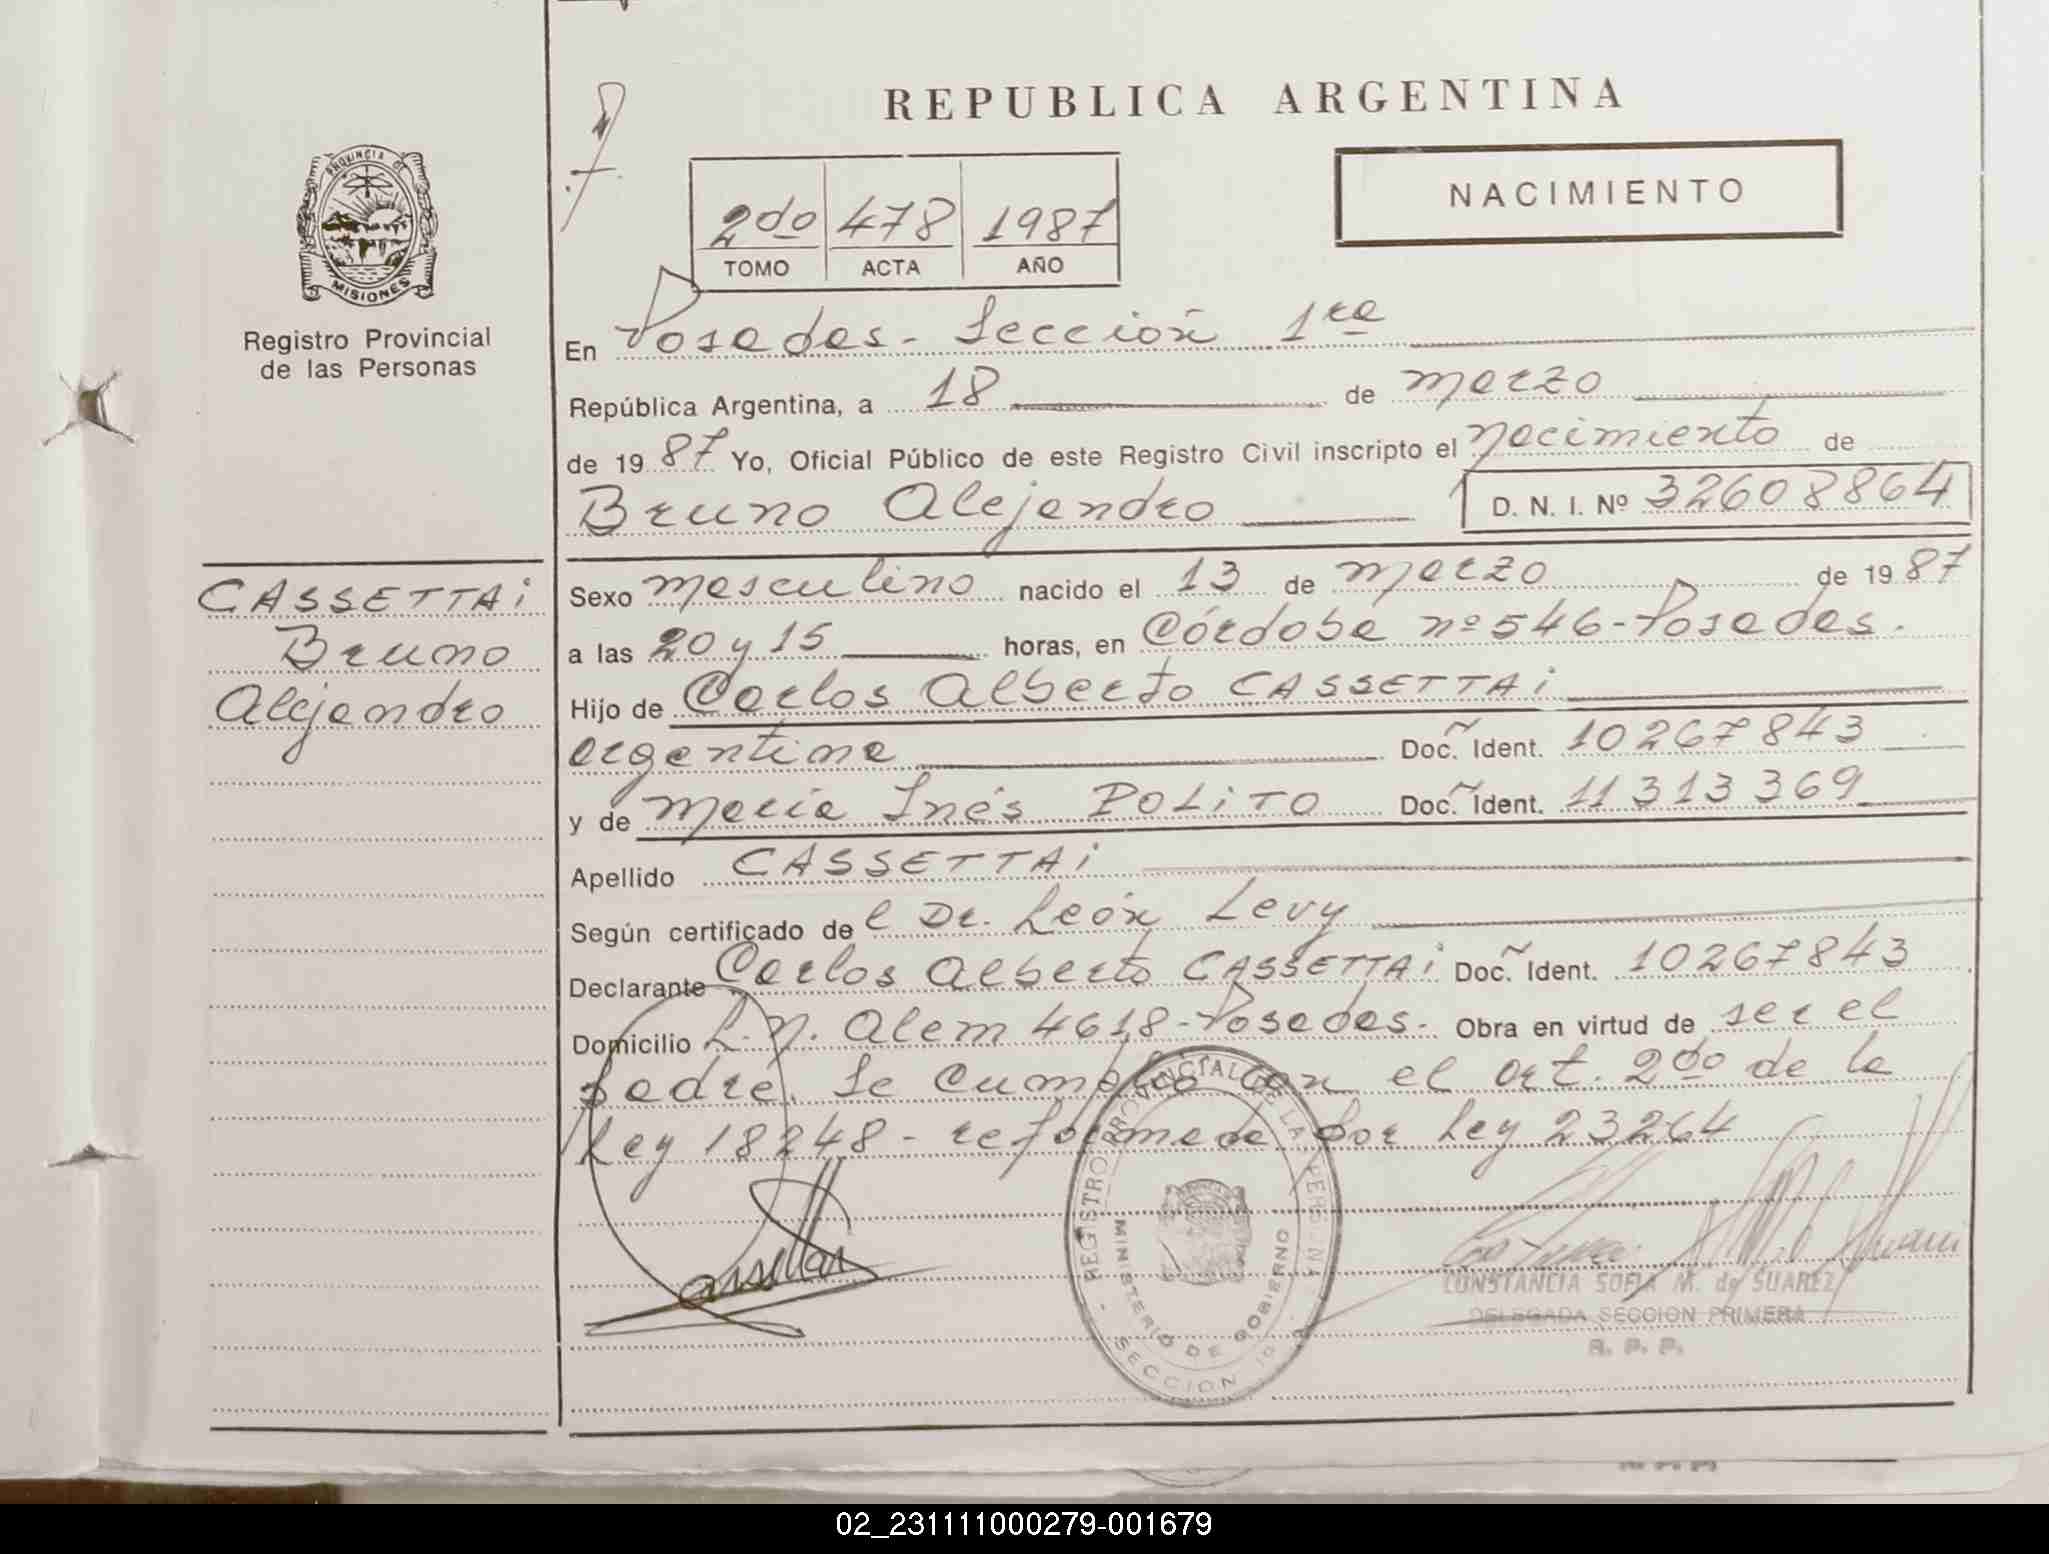 REPUBLICA ARGENTINA
NACIMIENTO
2do 478 1987
TOMO ACTA AÑO
PROVINCIA DE MISIONES
Registro Provincial
de las Personas
En Posadas - Sección 1ra
República Argentina, a 18 de marzo
de 1987 Yo, Oficial Público de este Registro Civil inscripto el nacimiento de
Bruno Alejandro D. N. I. Nº 32608864
CASSETTAi
Bruno
Alejandro
Sexo masculino nacido el 13 de marzo de 1987
a las 20 y 15 horas, en Córdoba nº 546 - Posadas.
Hijo de Carlos Alberto CASSETTAi
argentina Doc. Ident. 10267843
y de María Inés POLiTO Doc. Ident. 11313369
Apellido CASSETTAi
Según certificado del Dr. León Levy
Declarante Carlos Alberto CASSETTAi Doc. Ident. 10267843
Domicilio L. N. Alem 4618 - Posadas. Obra en virtud de ser el
padre. Se cumplió con el art. 2do de la
Ley 18248 - reformada por Ley 23264
REGISTRO PROVINCIAL DE LAS PERSONAS
MINISTERIO DE GOBIERNO
SECCION 1a
CONSTANCIA SOFIA M. de SUAREZ
DELEGADA SECCION PRIMERA
R. P. P.
02_231111000279-001679